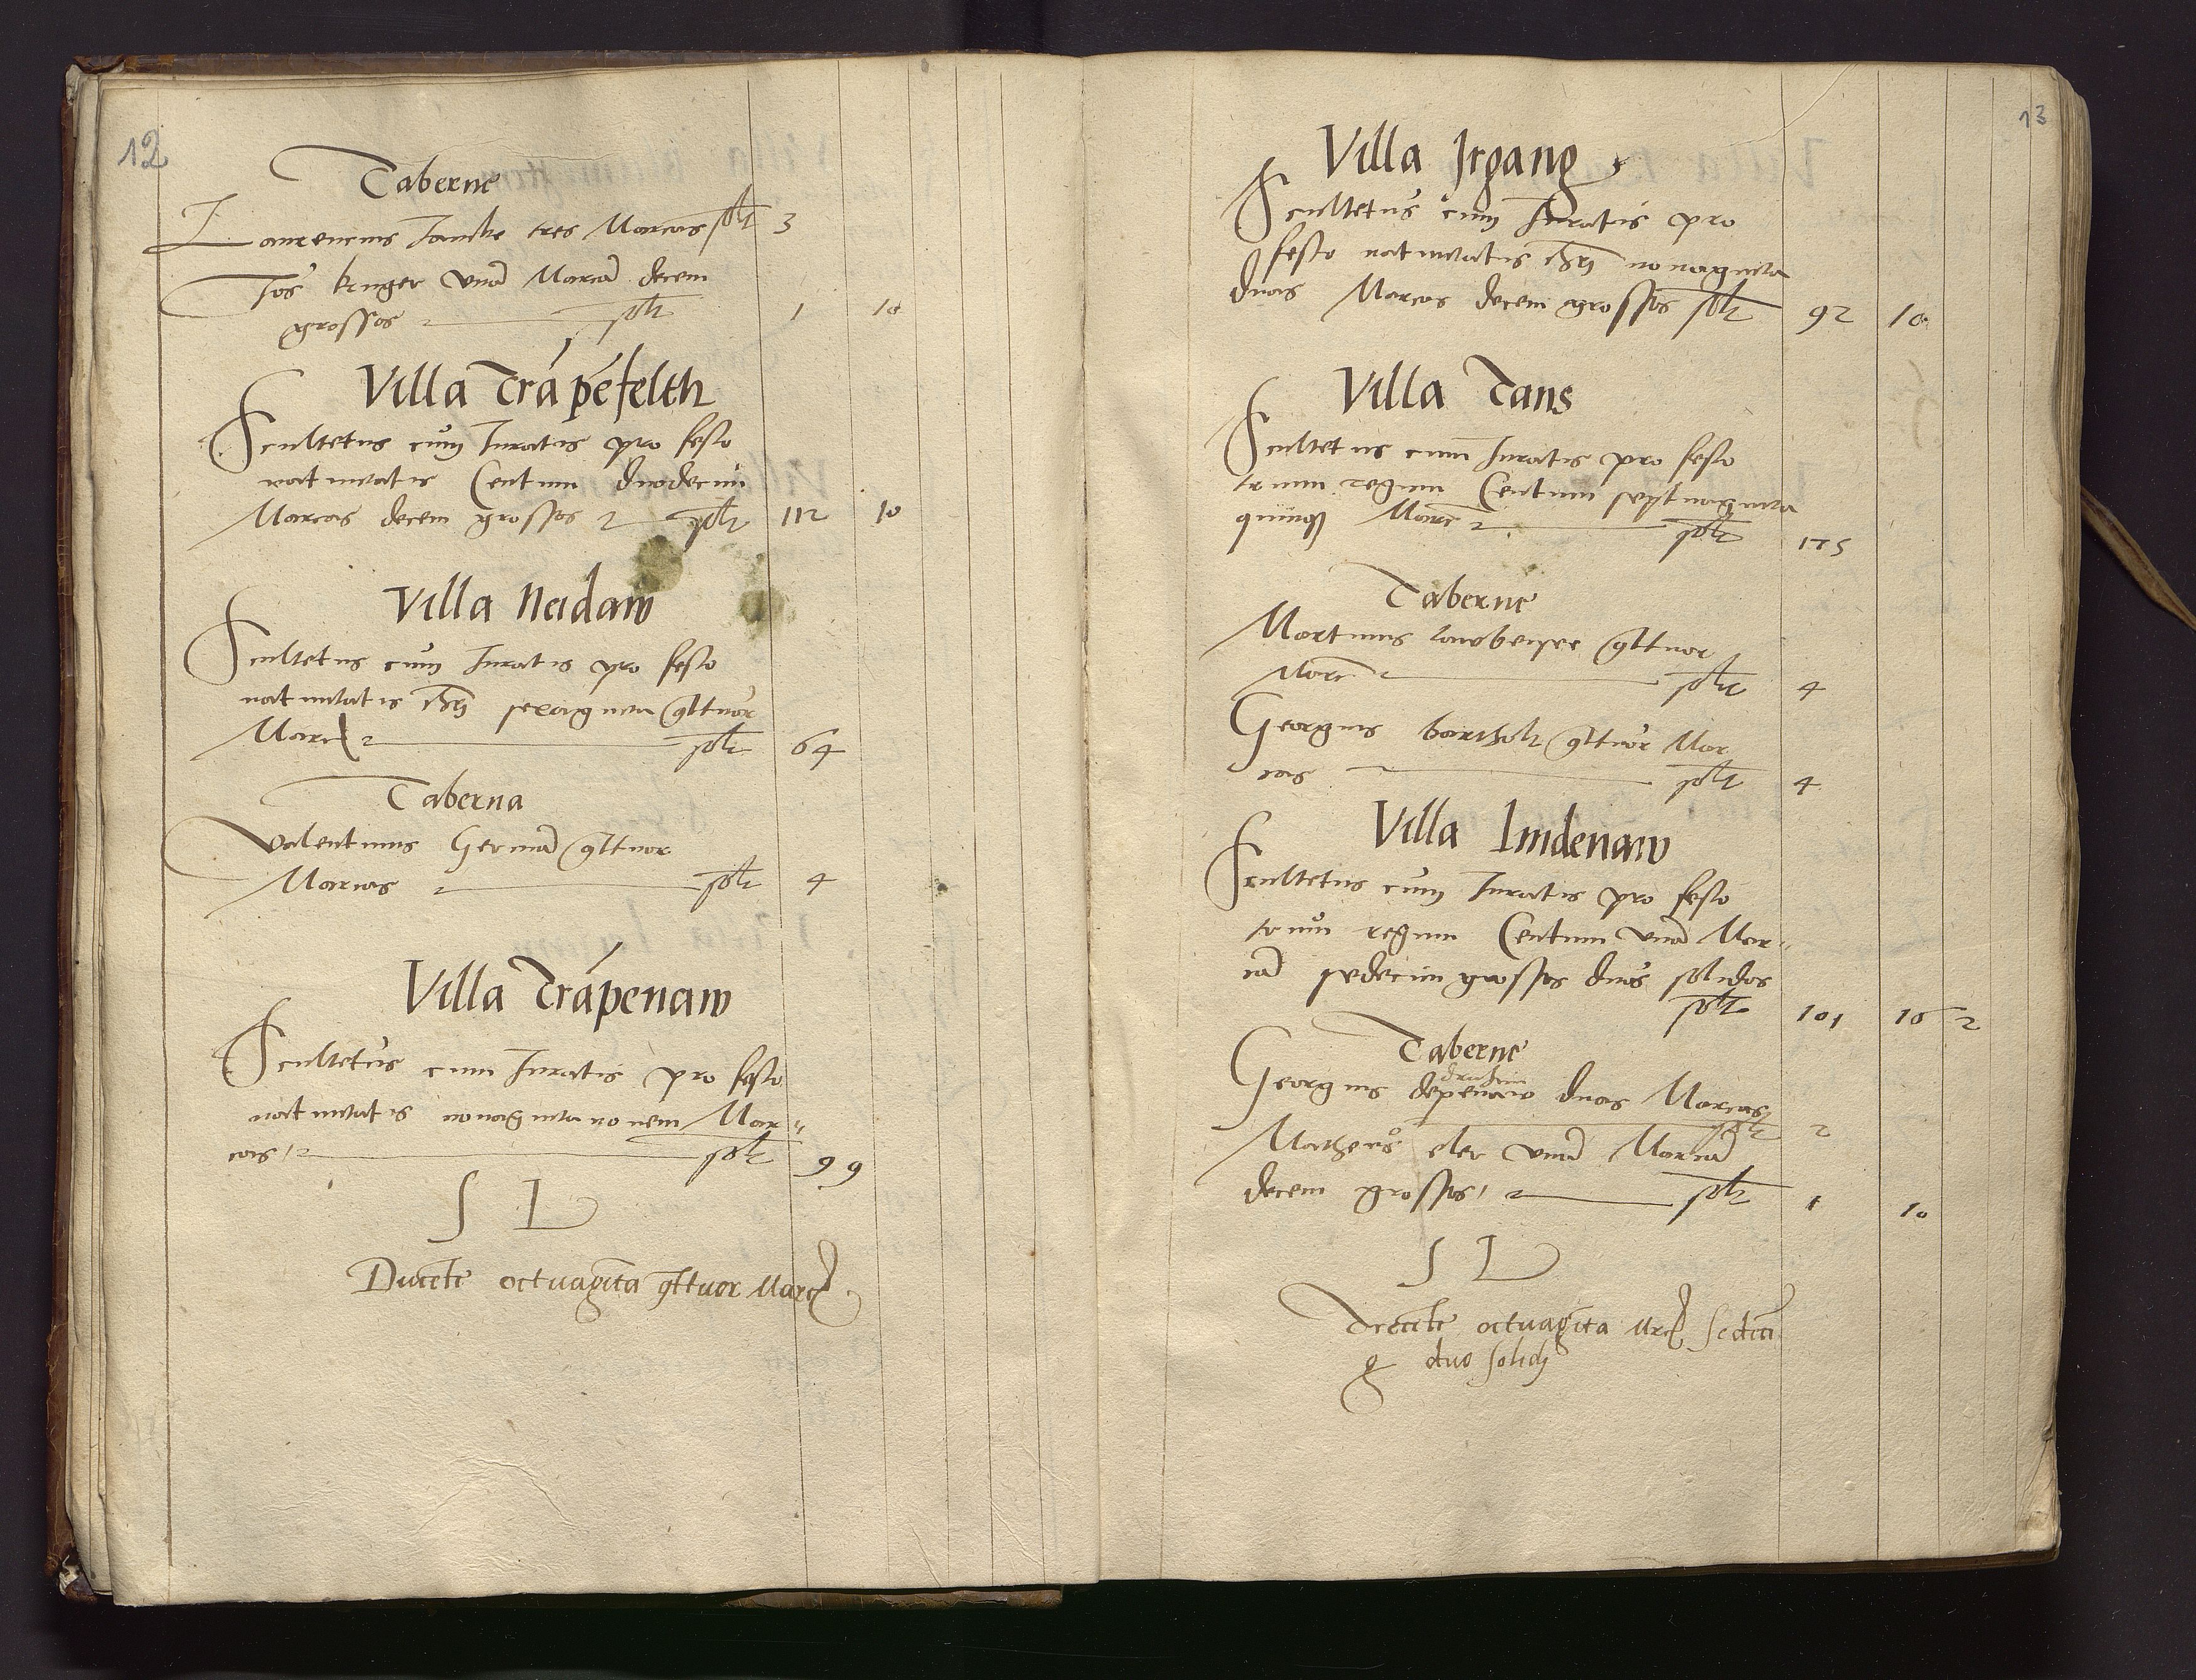 12
Taberne
Laurencius Tanche tres Marcas solt 3
Jos kruger vna Marca decem
grossos solt 1 10
Villa Trapefelth
Scultetus cum Juratis pro festo
natiuitatis Centum duodecim
Marcas decem grossos solt 112 10
Villa Neidaw
Scultetus cum Juratis pro festo
natiuitatis chri sexaginta qttuor
Marc solt 64
Taberna
Valentinus German qttuor
Marcas solt 4
Villa Trapenaw
Scultetus cum Juratis pro festo
natiuitatis nonaginta nouem Mar„
cas solt 99
S L
Ducete octuagita qttuor Marc
13
Villa Jrgang
Scultetus cum Juratis pro
festo natiuitatis chri nonaginta
duas Marcas decem grossos solt 92 10
Villa Tans
Scultetus cum Juratis pro festo
trium regum Centum septuaginta
quinq Marc solt 175
Taberne
Martinus qttuor
Marc solt 4
Georgius bartholt qttuor Mar
cas solt 4
Villa Lindenaw
Scultetus cum Juratis pro festo
trium regum Centum vna Mar„
ca sedecim grossos duos solidos
solt 101 16 2
Taberne
Georgius depenaw duas Marcas
solt 2
Matheus eler vna Marca
decem grossos solt 1 10
S L
Trecete octuagita Mrc Sedeci
g duo solidj